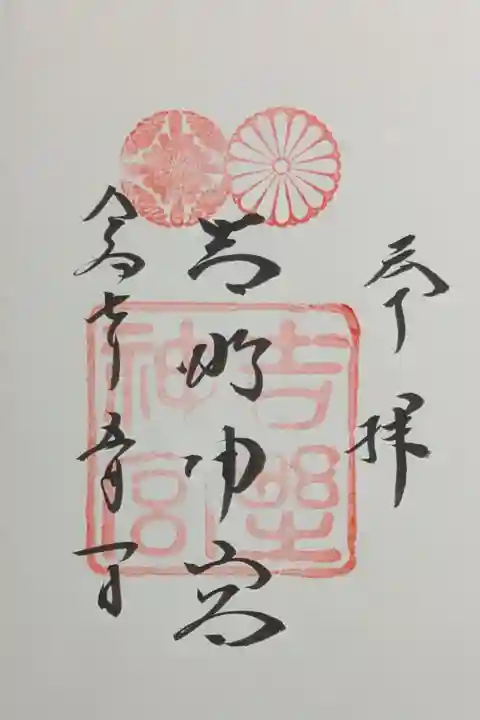 奉拝
吉野神宮
吉野神宮
令和七年五月一日